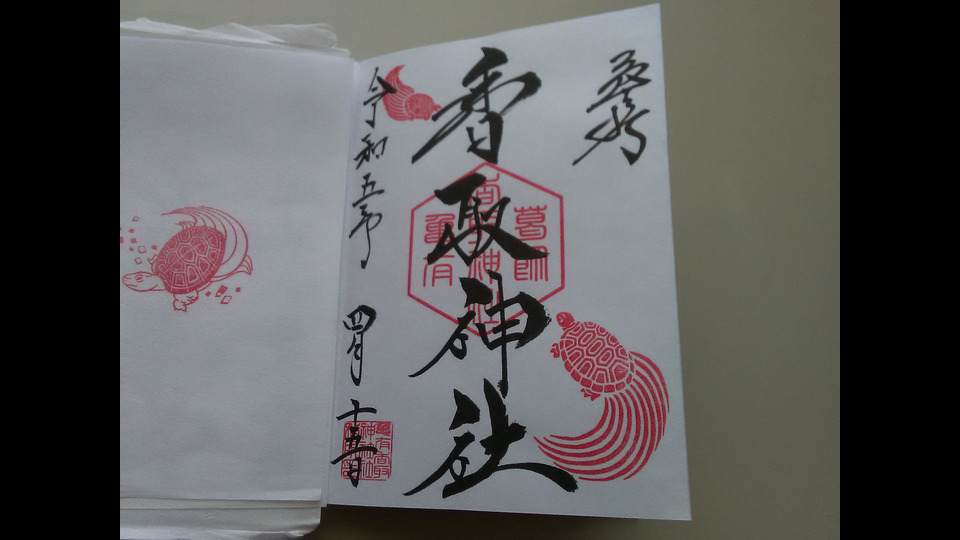 参拝
香取神社
葛飾
香取神社
龜有
令和五年 四月 十五日